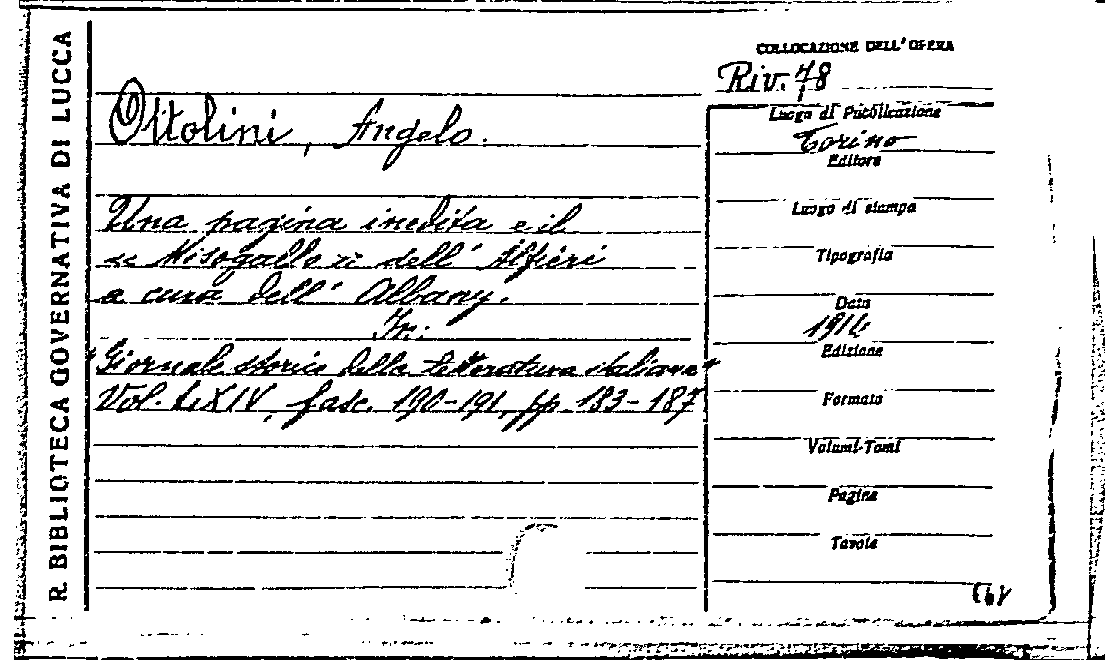 R. BIBLIOTECA GOVERNATIVA DI LUCCA
COLLOCAZIONE DELL'OPERA
Riv. 78
Ottolini, Angelo.
Una pagina inedita e il
« Misogallo » dell' Alfieri
a cura dell' Albany.
In:
"Giornale storico della letteratura italiana"
Vol. LXIV, fasc. 190-191, pp. 183-187
Luogo di Pubblicazione
Torino
Editore
Luogo di stampa
Tipografia
Data
1914
Edizione
Formato
Volumi-Tomi
Pagine
Tavole